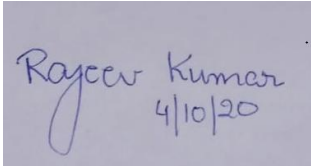 Rajeev Kumar
4/10/20